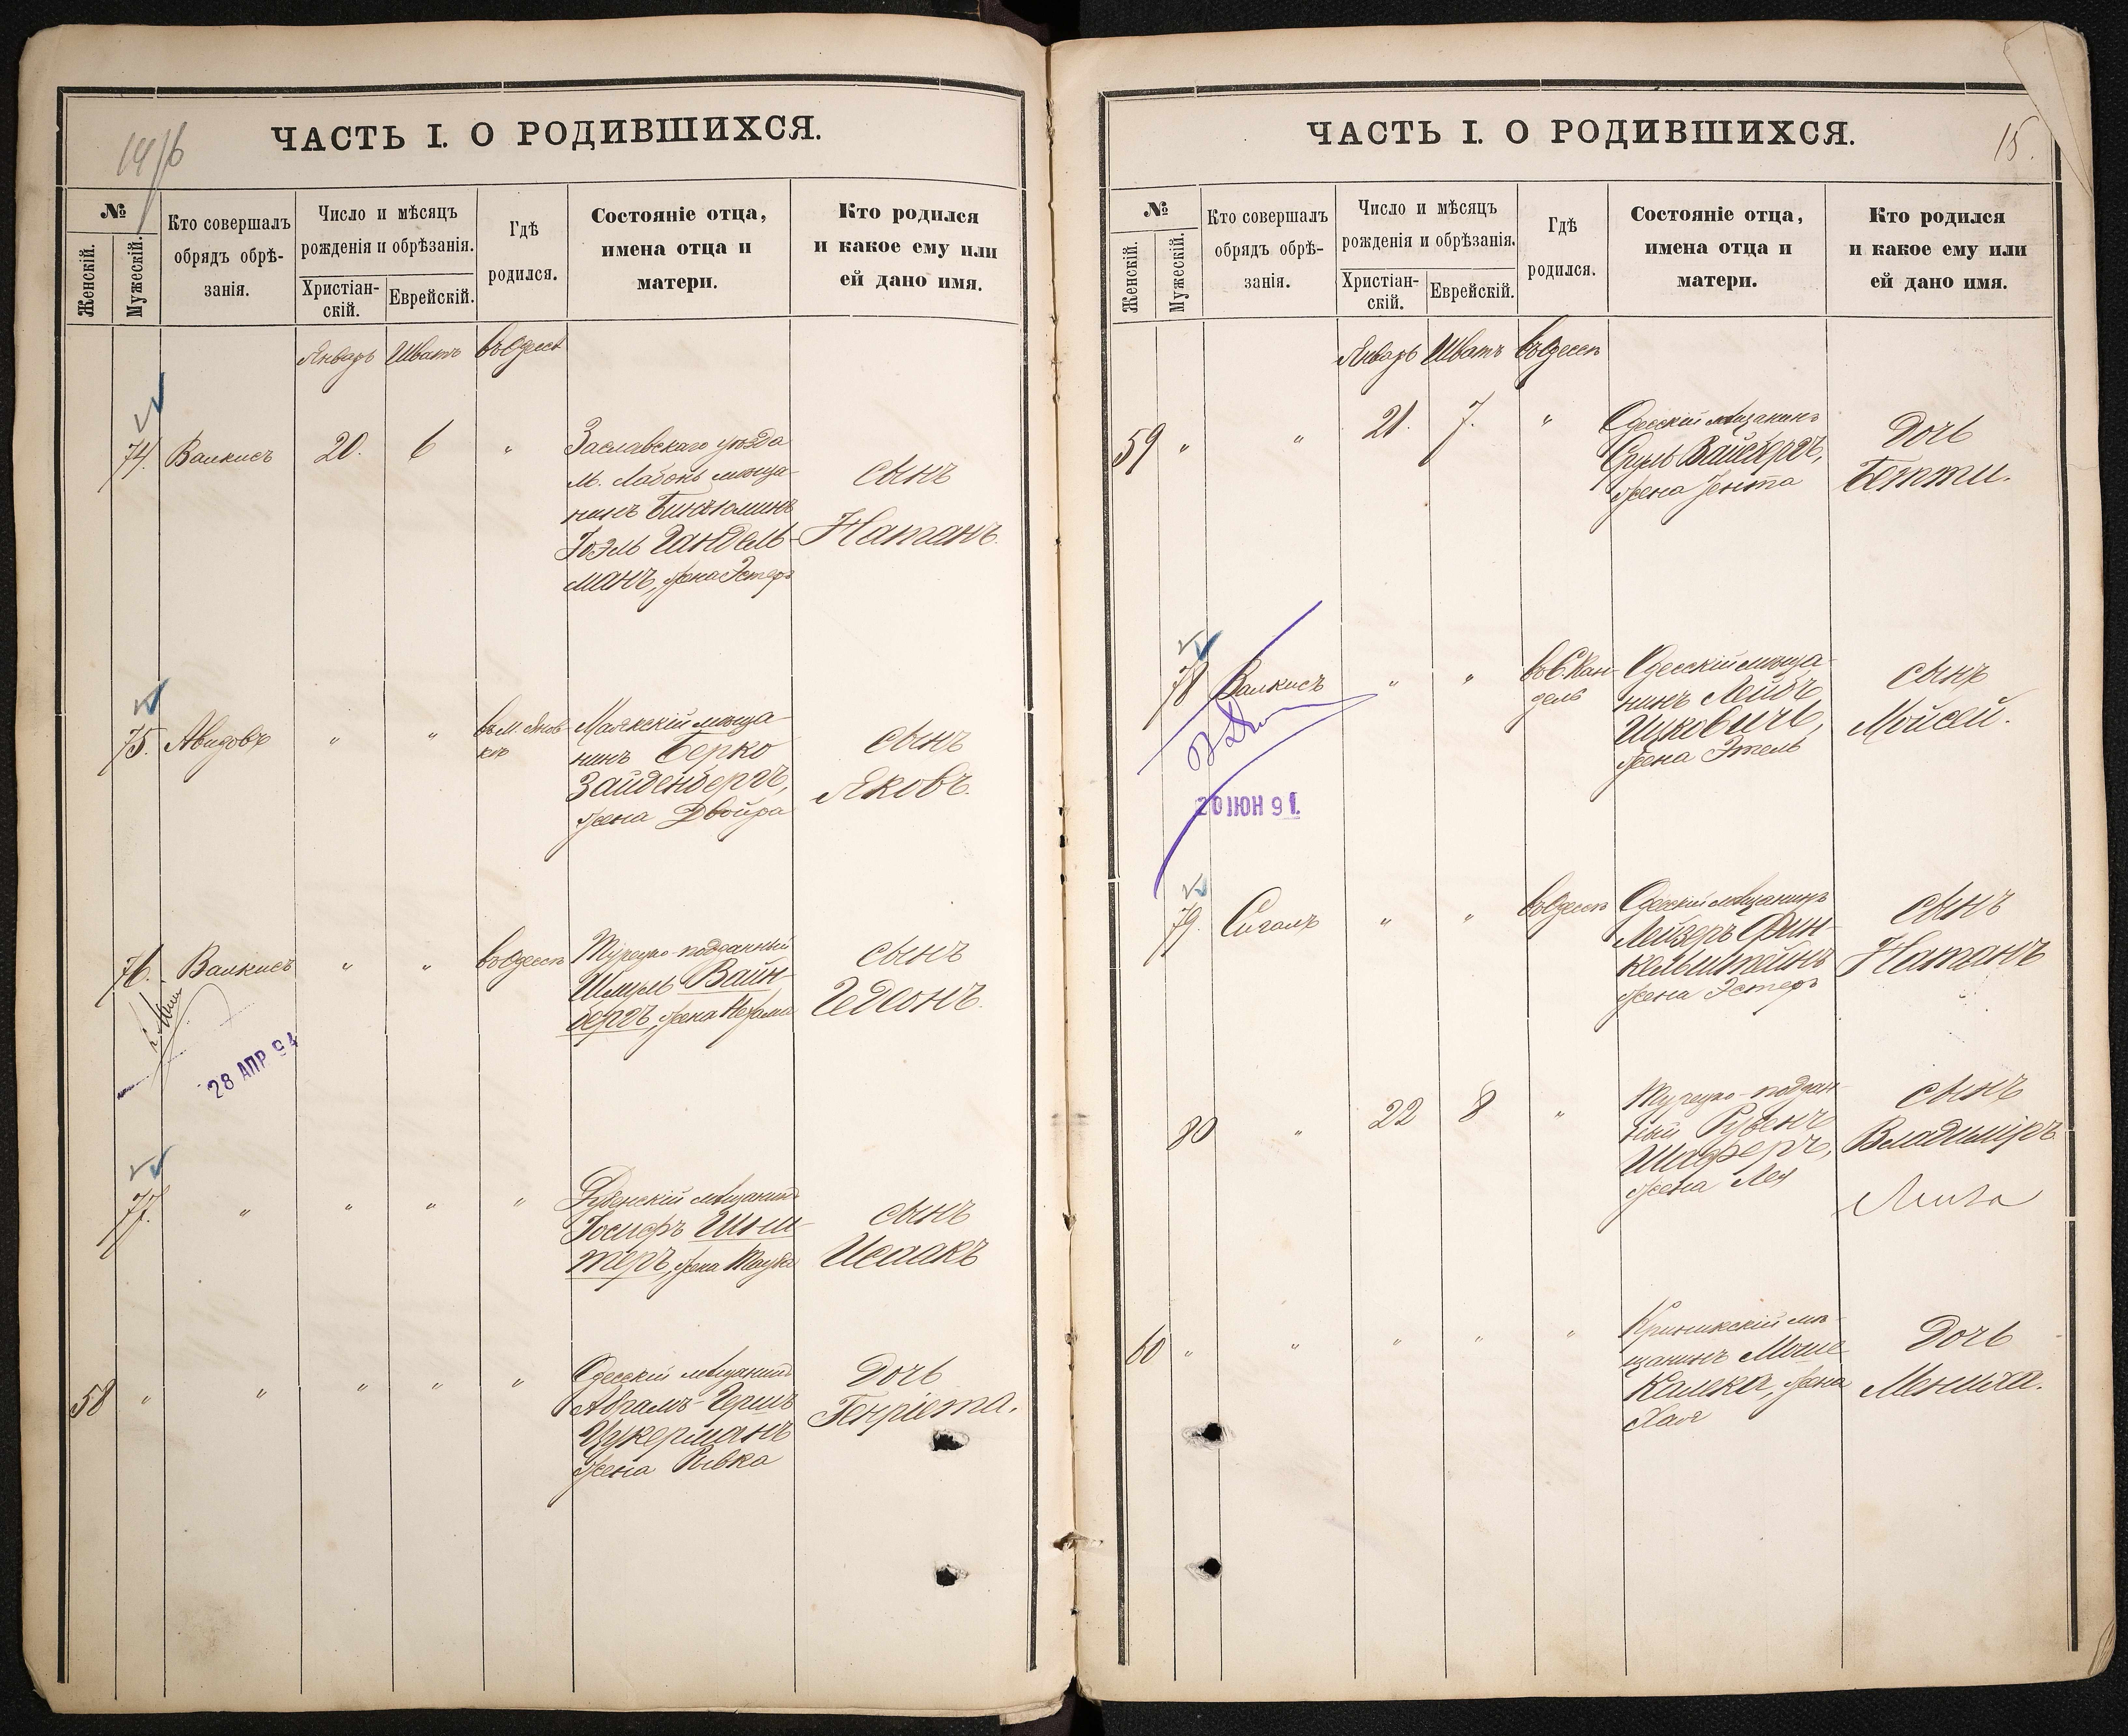 14/16
ЧАСТЬ I. О РОДИВШИХСЯ.
№
Женскій.
Мужескій.
Кто совершалъ
обрядъ обрѣ-
занія.
Число и мѣсяцъ
рожденія и обрѣзанія.
Христіан-
скій.
Еврейскій.
Гдѣ
родился.
Состояніе отца,
имена отца и
матери.
Кто родился
и какое ему или
ей дано имя.
Январь Шватъ въ Одессѣ
74. Валкисъ 20. 6 "
Заславскаго уѣзда
м. Лабонь мѣща-
нинъ Биньюминъ
Іоэль Гандель-
манъ, жена Эстеръ
сынъ
Натанъ.
75. Авидовъ " " въ м. Янов-
кѣ
Маякскій мѣща-
нинъ Берко
Зайденбергъ,
жена Двойра
сынъ
Яковъ.
76. Валкисъ " " въ Одессѣ
Турецко-подданный
Шмуль Вайн-
бергъ, жена Нехама
сынъ
Гедсонъ.
28 АПР 94
77. " " " "
Дубенскій мѣщанинъ
Іосифъ
теръ, жена Тауба
сынъ
Исаакъ
58 " " " " "
Одесскій мѣщанинъ
Абрамъ-Гершъ
Цукерманъ
жена Ривка
Дочь
Генріета.
ЧАСТЬ I. О РОДИВШИХСЯ.
15.
№
Женскій.
Мужескій.
Кто совершалъ
обрядъ обрѣ-
занія.
Число и мѣсяцъ
рожденія и обрѣзанія.
Христіан-
скій.
Еврейскій.
Гдѣ
родился.
Состояніе отца,
имена отца и
матери.
Кто родился
и какое ему или
ей дано имя.
Январь Шватъ въ Одессѣ
59 " " 21. 7. "
Одесскій мѣщанинъ
Сруль Вайсбергъ,
жена Іента
Дочь
Бетти.
78 Валкисъ " " въ С. Кан-
дель
Одесскій мѣща-
нинъ Лейбъ
Ицковичъ,
жена Этель
сынъ
Мойсей.
20 ІЮН 91.
79. Сигалъ " " въ Одессѣ
Одесскій мѣщанинъ
Лейзеръ Фин-
кельштейнъ
жена Эстеръ
сынъ
Натанъ
80 " 22 8 "
Турецко-поддан-
ный Рувенъ
Шаферъ,
жена Лея
сынъ
Владиміръ
60 " " " " "
мѣ-
щанинъ Моше
Калека, жена
Хая
Дочь
Мениха.